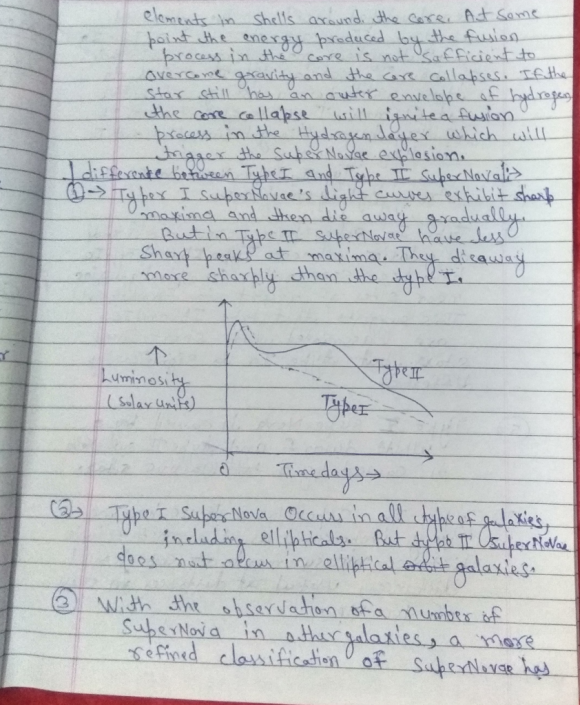 elements in shells around the core. At some
point the energy produced by the fusion
process in the core is not safficient to
overcome gravity and the core collapses. If the
star still has an outer envelope of hydrogen
the core collapse will ignite a fusion
process in the Hydrogen layer which will
trigger the SuperNovae explosion.
difference between Type I and Type II SuperNova :→
① → Typer I superNovae's light curves exhibit sharp
maxima and then die away gradually.
But in Type II SuperNovae have less
Sharp peaks at maxima. They dieaway
more sharply than the type I.
↑
Luminosity
(Solar units)
Type II
Type I
0
Time days →
② → Type I SuperNova Occurs in all type of galaxies,
including ellipticals. But type II SuperNovae
does not occur in elliptical galaxies.
③ With the observation of a number of
SuperNova in other galaxies, a more
refined classification of SuperNovae has